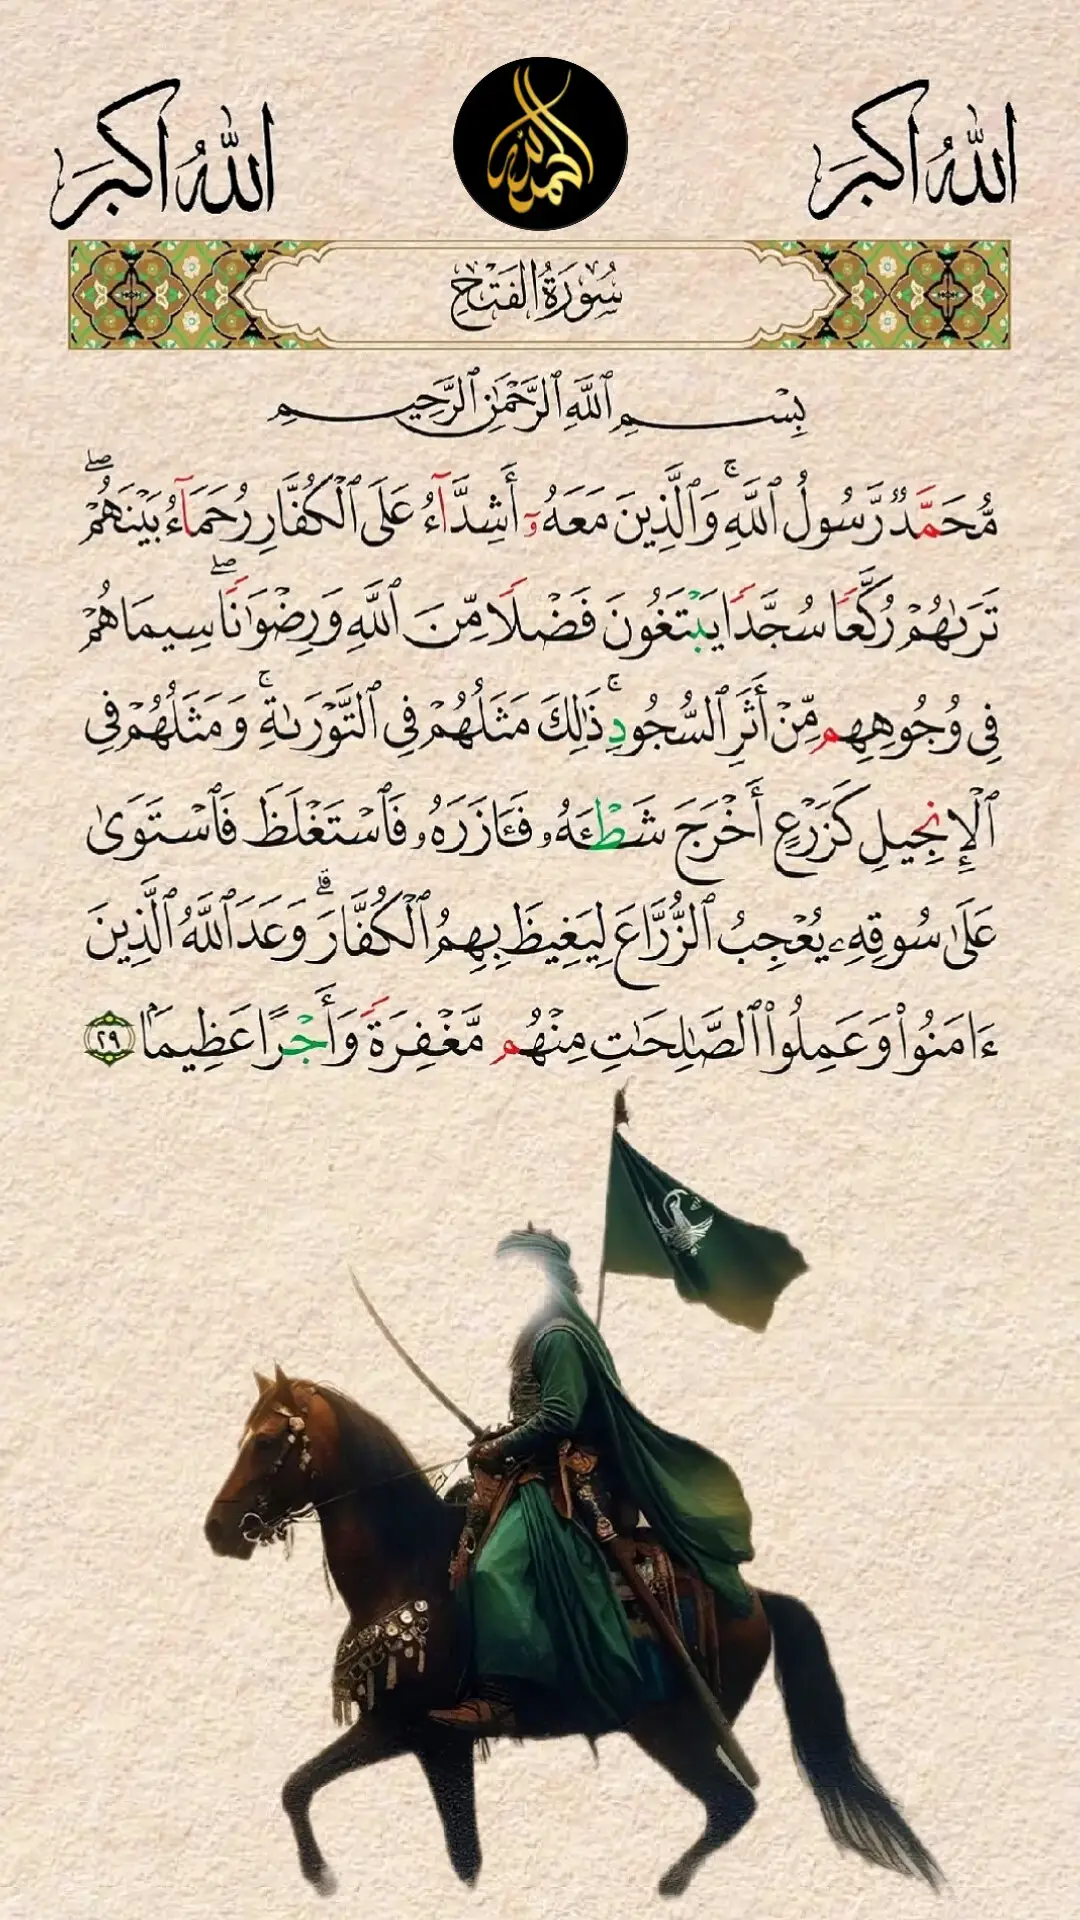 الله أكبر
الحمد لله
الله أكبر
سُورَةُ الفَتْحِ
بِسْمِ ٱللَّهِ ٱلرَّحْمَٰنِ ٱلرَّحِيمِ
مُّحَمَّدٌ رَّسُولُ ٱللَّهِ ۚ وَٱلَّذِينَ مَعَهُۥٓ أَشِدَّآءُ عَلَى ٱلْكُفَّارِ رُحَمَآءُ بَيْنَهُمْ ۖ
تَرَىٰهُمْ رُكَّعًا سُجَّدًا يَبْتَغُونَ فَضْلًا مِّنَ ٱللَّهِ وَرِضْوَٰنًا ۖ سِيمَاهُمْ
فِى وُجُوهِهِم مِّنْ أَثَرِ ٱلسُّجُودِ ۚ ذَٰلِكَ مَثَلُهُمْ فِى ٱلتَّوْرَىٰةِ ۚ وَمَثَلُهُمْ فِى
ٱلْإِنجِيلِ كَزَرْعٍ أَخْرَجَ شَطْـَٔهُۥ فَـَٔازَرَهُۥ فَٱسْتَغْلَظَ فَٱسْتَوَىٰ
عَلَىٰ سُوقِهِۦ يُعْجِبُ ٱلزُّرَّاعَ لِيَغِيظَ بِهِمُ ٱلْكُفَّارَ ۗ وَعَدَ ٱللَّهُ ٱلَّذِينَ
ءَامَنُوا۟ وَعَمِلُوا۟ ٱلصَّٰلِحَٰتِ مِنْهُم مَّغْفِرَةً وَأَجْرًا عَظِيمًۢا ٢٩